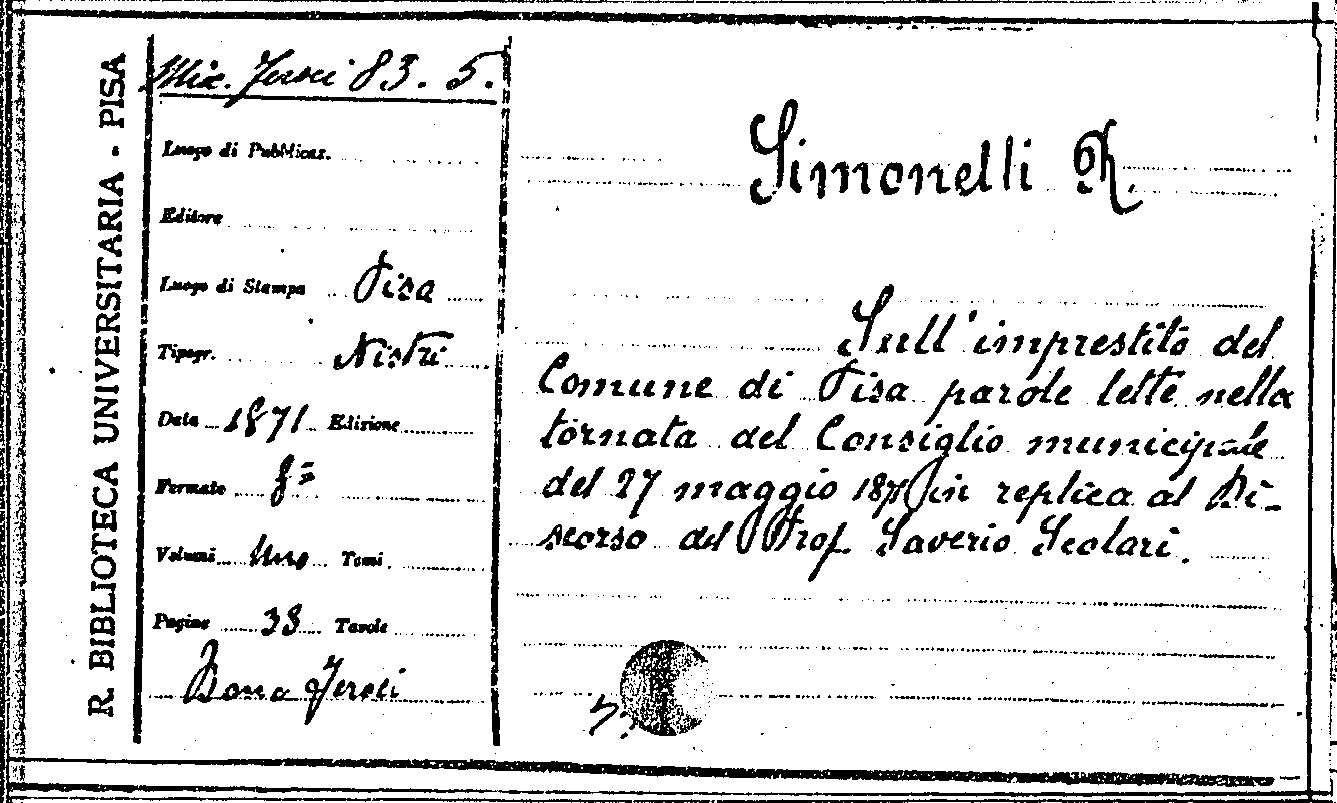 R. BIBLIOTECA UNIVERSITARIA - PISA
Mis. Feroci 83. 5.
Luogo di Pubblicaz.
Editore
Luogo di Stampa Pisa
Tipogr. Nistri
Data 1871 Edizione
Formato 8º
Volumi Uno Tomi
Pagine 33 Tavole
Dono Feroci
Simonelli R.
Sull'imprestito del
Comune di Pisa parole lette nella
tornata del Consiglio municipale
del 27 maggio 1871 in replica al Di-
scorso del Prof. Saverio Scolari.